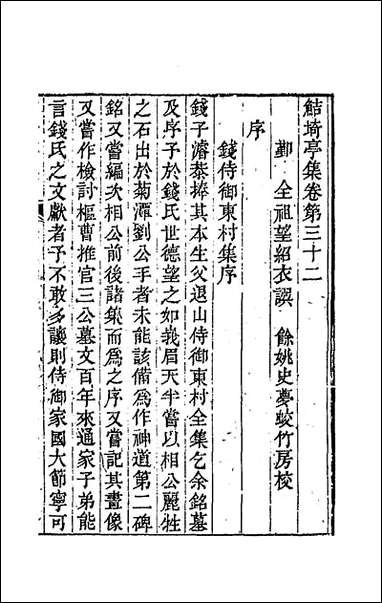 鮚埼亭集卷第三十二
鄞　全祖望紹衣譔　餘姚史夢蛟竹房校
序
錢侍御東村集序
錢子濬恭捧其本生父退山侍御東村全集乞余銘墓
及序子於錢氏世德望之如峩眉天半嘗以相公麗牲
之石出於菊潭劉公手者未能該備爲作神道第二碑
銘又嘗編次相公前後諸集而爲之序又嘗記其畫像
又嘗作檢討樞曹推官三公墓文百年來通家子弟能
言錢氏之文獻者予不敢多讓則侍御家國大節寧可